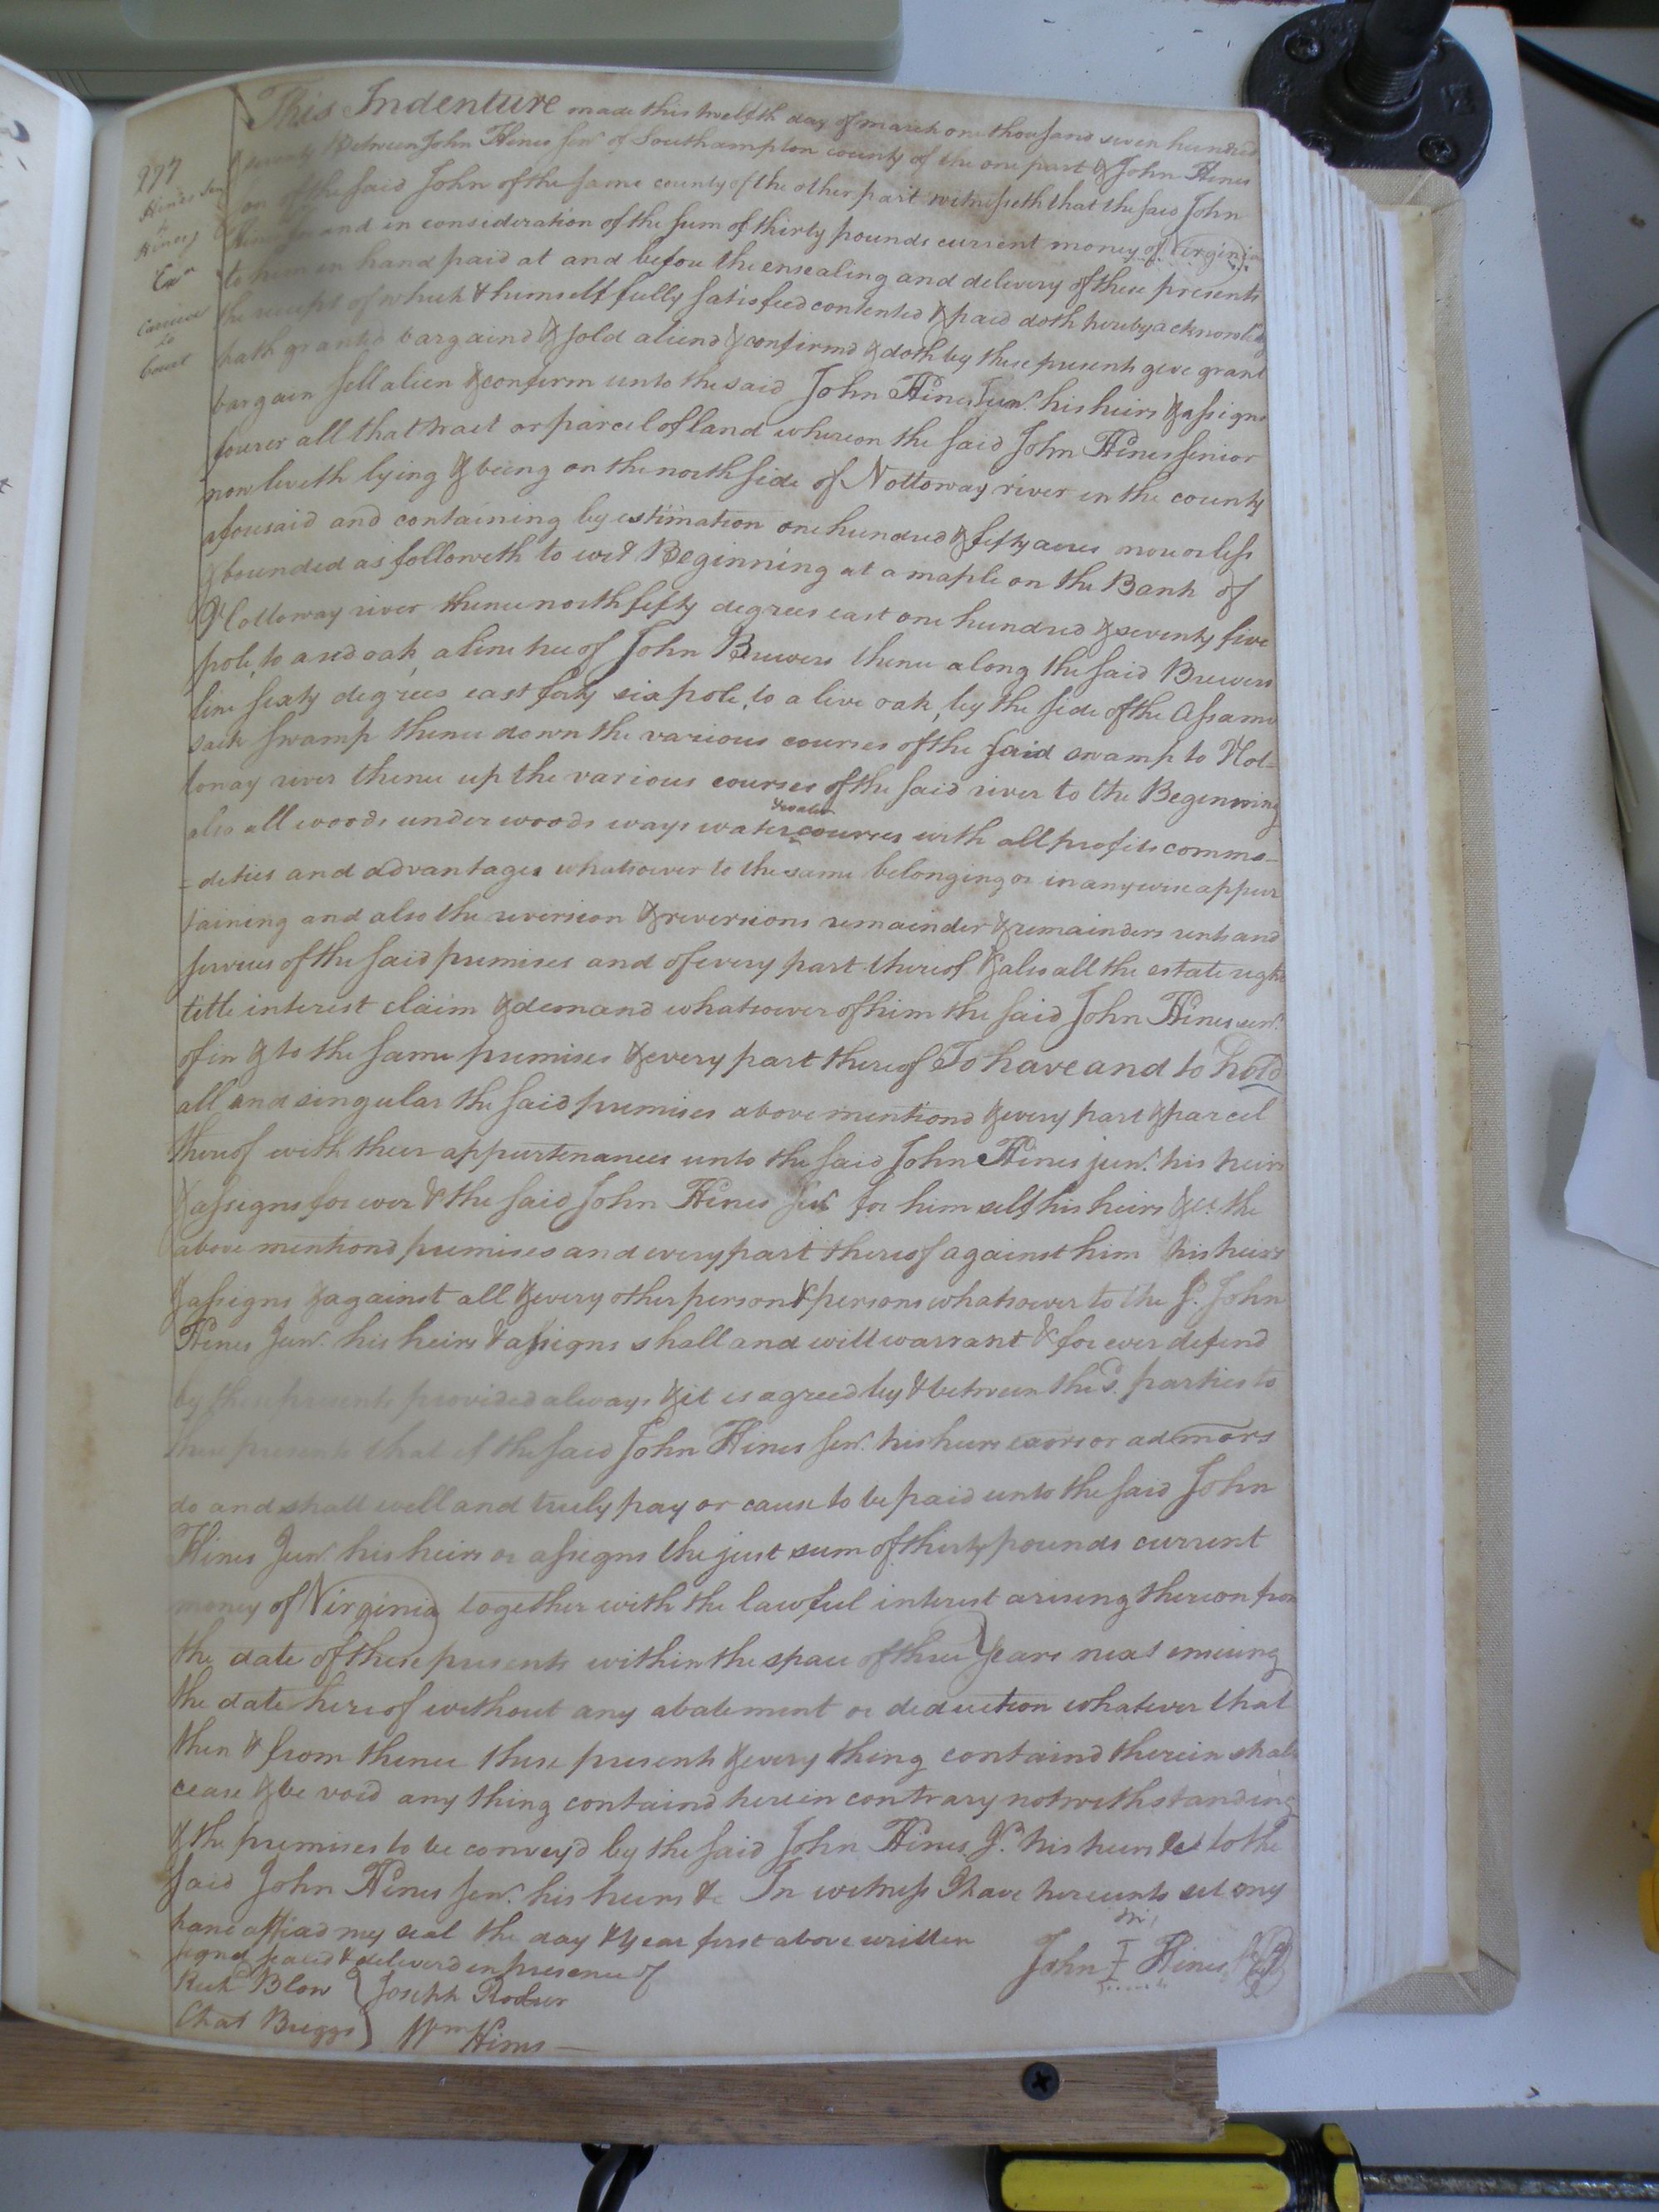 This Indenture made this twelfth day of march one thousand seven hundred
& seventy Between John Hines Senr of Southampton county of the one part & John Hines
son of the said John of the same county of the other part witnesseth that the said John
Hines for and in consideration of the sum of thirty pounds current money of Virginia
to him in hand paid at and before the ensealing and delivery of these presents
the receipt of which & himself fully satisfied contented & paid doth hereby acknowledg
hath granted bargaind & sold aliend & confirmd & doth by these presents give grant
bargain sell alien & confirm unto the said John Hines Junr. his heirs & assigns
forever all that tract or parcel of land whereon the said John Hines senior
now liveth lying & being on the north side of Nottoway river in the county
aforesaid and containing by estimation one hundred & fifty acres more or less
& bounded as followeth to wit Beginning at a maple on the Bank of
Nottoway river thence north fifty degrees east one hundred & seventy five
pole, to a red oak, a line tree of John Brewers thence along the said Brewers
line sixty degrees east forty six pole, to a live oak, by the side of the Assamo
sack swamp thence down the various courses of the said swamp to Not-
toway river thence up the various courses of the said river to the Beginning
also all woods under woods ways waters & water courses with all profits commo-
= dities and advantages whatsoever to the same belonging or in any wise apper
taining and also the reversion & reversions remainder & remainders rents and
services of the said premises and of every part thereof & also all the estate right
title interest claim & demand whatsoever of him the said John Hines senr.
of in & to the same premises & every part thereof To have and to hold
all and singular the said premises above mentiond & every part & parcel
thereof with their appurtenances unto the said John Hines junr. his heirs
& assigns for ever & the said John Hines Senr for him self his heirs &ct. the
above mentiond premises and every part thereof against him his heirs
& assigns & against all & every other person & persons whatsoever to the sd. John
Hines Junr. his heirs & assigns shall and will warrant & for ever defend
by these presents provided always & it is agreed by & between the sd. parties to
these presents that if the said John Hines Senr. his heirs exors or admors
do and shall well and truly pay or cause to be paid unto the said John
Hines Junr. his heirs or assigns the just sum of thirty pounds current
money of Virginia together with the lawful interest arising thereon from
the date of these presents within the space of three years next ensuing
the date hereof without any abatement or deduction whatever that
then & from thence these presents & every thing containd therein shall
cease & be void any thing containd herein contrary notwithstanding
& the premises to be convey'd by the said John Hines Jr. his heirs &ct to the
said John Hines Senr. his heirs &c In witness I have hereunto set my
hand affixd my seal the day & year first above written
signd seald & deliverd in presence of
John I Hines
Richd Blow } Joseph
Chas Briggs } Wm Hines
Hines Senr
to
Hines J
Exn
Carried
to
Court